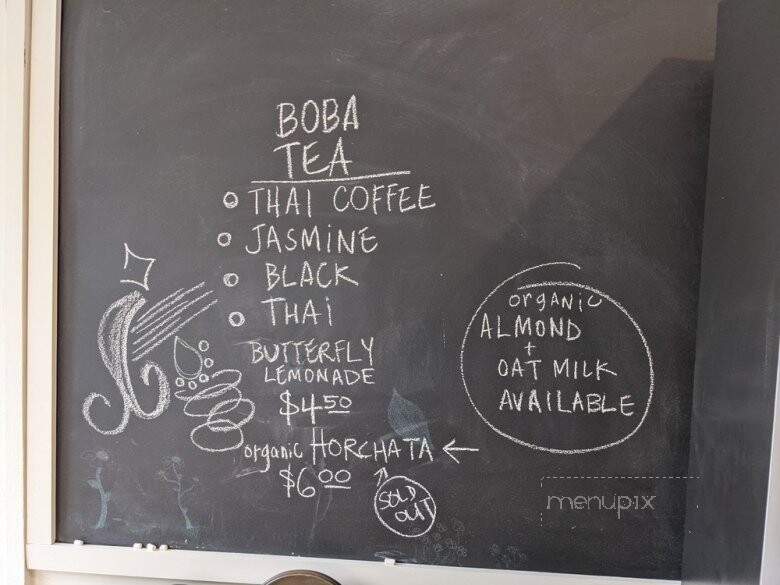 BOBA
TEA
THAI COFFEE
JASMINE
BLACK
THAI
BUTTERFLY
LEMONADE
$4.50
organic HORCHATA ←
$6.00
SOLD
OUT
organic
ALMOND
+
OAT MILK
AVAILABLE
menupix